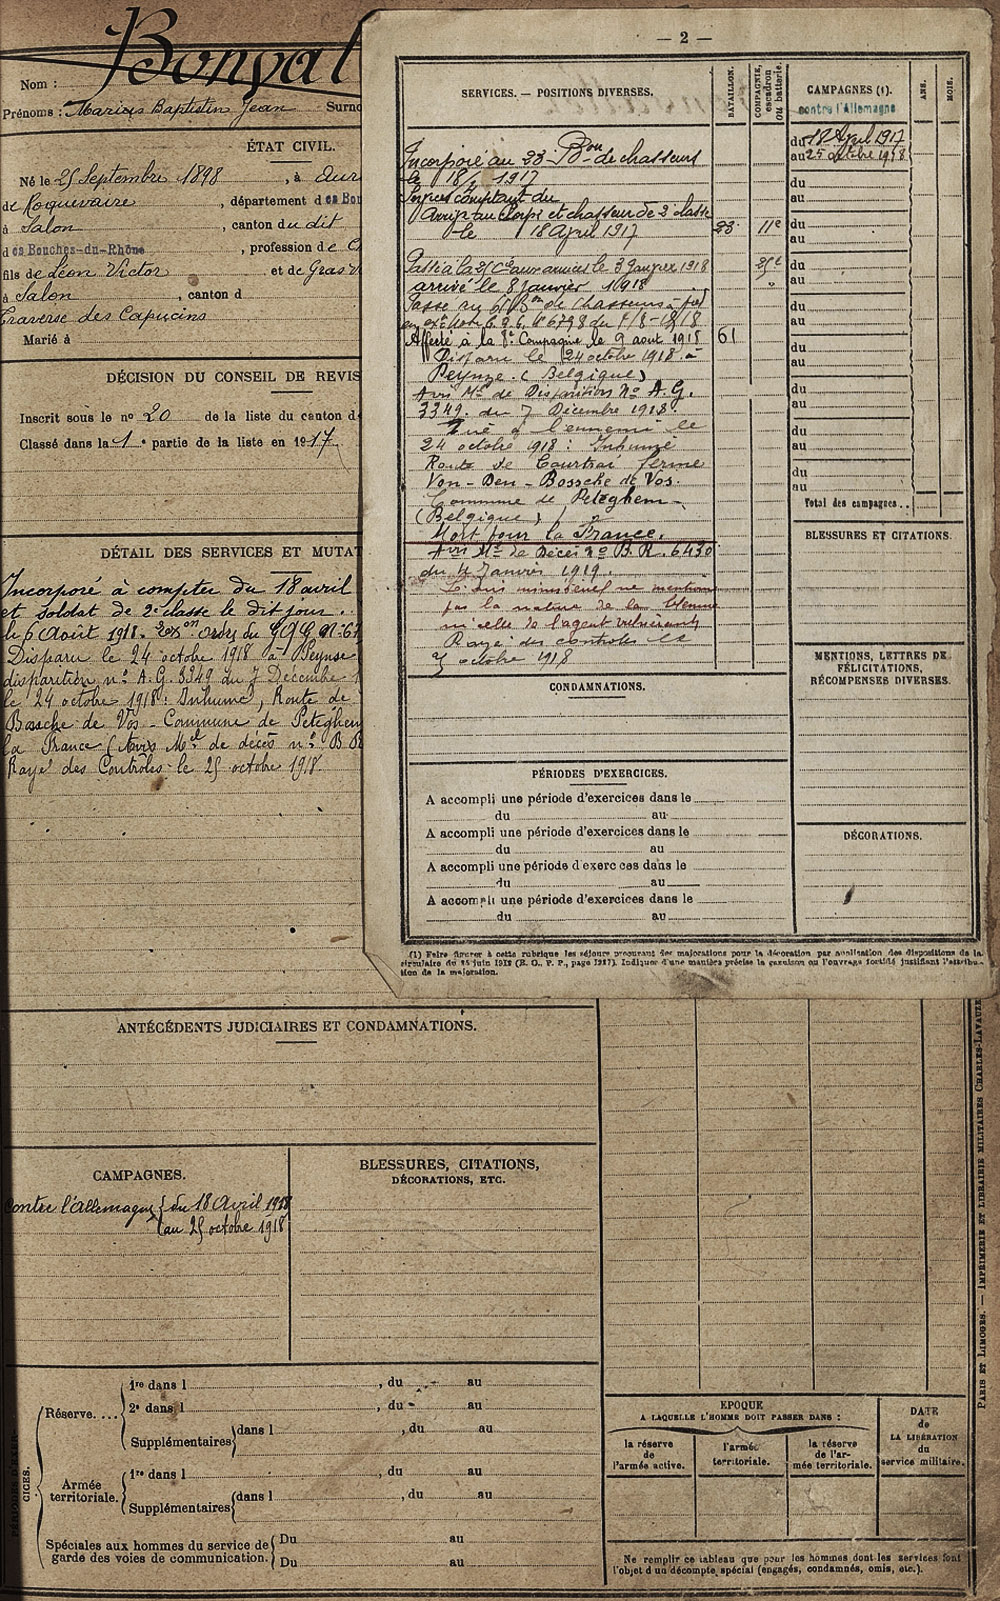 Bonval
Nom :
Prénoms : Marius Baptistin Jean Surno
ÉTAT CIVIL.
Né le 25 Septembre 1898 , à Aur
de Roquevaire , département des Bou
à Salon , canton du dit
des Bouches-du-Rhône , profession de C
fils de Léon Victor et de Gras
à Salon , canton d
Traverse des Capucins
Marié à
DÉCISION DU CONSEIL DE REVIS
Inscrit sous le nº 20 de la liste du canton d
Classé dans la 1e partie de la liste en 1917.
DÉTAIL DES SERVICES ET MUTAT
Incorporé à compter du 18 avril
et soldat de 2e classe le dit jour.
le 6 Août 1918. ordre du G Q G nº 67
Disparu le 24 octobre 1918 à Peynse
disparition nº A.G. 3349 du 7 Décembre 1
le 24 octobre 1918 : Inhumé, Route de
Bossche de Vos - Commune de Peteghem
la France (Avis Mel de décès nº B R
Rayé des Contrôles le 25 octobre 1918
— 2 —
SERVICES. — POSITIONS DIVERSES.
BATAILLON.
COMPAGNIE, escadron ou batterie.
CAMPAGNES (1).
contre l'Allemagne
ANS.
MOIS.
Incorporé au 23 Bon de chasseurs
le 18/ 1917
comptant du
Arrivé au Corps et chasseur de 2e classe
le 18 April 1917 23 11e
Passé à la 25 Cie aux armées le 3 Janvier 1918 25e
arrivé le 8 Janvier 1918
Passé au 61 Bon de Chasseurs à pied
G.Q.G. nº 6798 du 1/8-1918
Affecté à la 8e Compagnie le 9 août 1918 61
Disparu le 24 octobre 1918 à
Peynze. (Belgique)
Avis Mel de Disparition Nº A.G.
3349. du 7 Décembre 1918.
Tué à l'ennemi le
24 octobre 1918 : Inhumé
Route de Courtrai ferme
Von - Den - Bossche de Vos.
Commune de Peteghem -
(Belgique)
Mort pour la France.
Avis Mel de Décès nº B.R. 6430
du 4 Janvier 1919.
L'avis ministériel ne mentionne
pas la nature de la blessure
ni celle de l'agent vulnérant
Rayé des controles le
octobre 1918
du 18 April 1917
au 25 octobre 1918
du
au
du
au
du
au
du
au
du
au
du
au
du
au
du
au
Total des campagnes..
BLESSURES ET CITATIONS.
MENTIONS, LETTRES DE
FÉLICITATIONS,
RÉCOMPENSES DIVERSES.
DÉCORATIONS.
CONDAMNATIONS.
PÉRIODES D'EXERCICES.
A accompli une période d'exercices dans le
du au
A accompli une période d'exercices dans le
du au
A accompli une période d'exercices dans le
du au
A accompli une période d'exercices dans le
du au
(1) Faire figurer à cette rubrique les séjours procurant des majorations pour la décoration par application des dispositions de la
circulaire du 14 juin 1912 (B. O., P. P., page 1217). Indiquer d'une manière précise la garnison ou l'ouvrage fortifié justifiant l'attribu-
tion de la majoration.
ANTÉCÉDENTS JUDICIAIRES ET CONDAMNATIONS.
CAMPAGNES.
contre l'Allemagne du 18 Avril 1918
au 25 octobre 1918
BLESSURES, CITATIONS,
DÉCORATIONS, ETC.
PÉRIODES D'EXER-
CICES.
Réserve....
1re dans l , du au
2e dans l , du au
Supplémentaires dans l , du au
Armée
territoriale.
1re dans l , du au
Supplémentaires dans l , du au
Spéciales aux hommes du service de
garde des voies de communication.
Du au
Du au
EPOQUE
A LAQUELLE L'HOMME DOIT PASSER DANS :
la réserve
de
l'armée active.
l'armée
territoriale.
la réserve
de l'ar-
mée territoriale.
DATE
de
LA LIBÉRATION
du
service militaire.
Ne remplir ce tableau que pour les hommes dont les services font
l'objet d'un décompte spécial (engagés, condamnés, omis, etc.).
PARIS ET LIMOGES. — IMPRIMERIE ET LIBRAIRIE MILITAIRES CHARLES-LAVAUZE